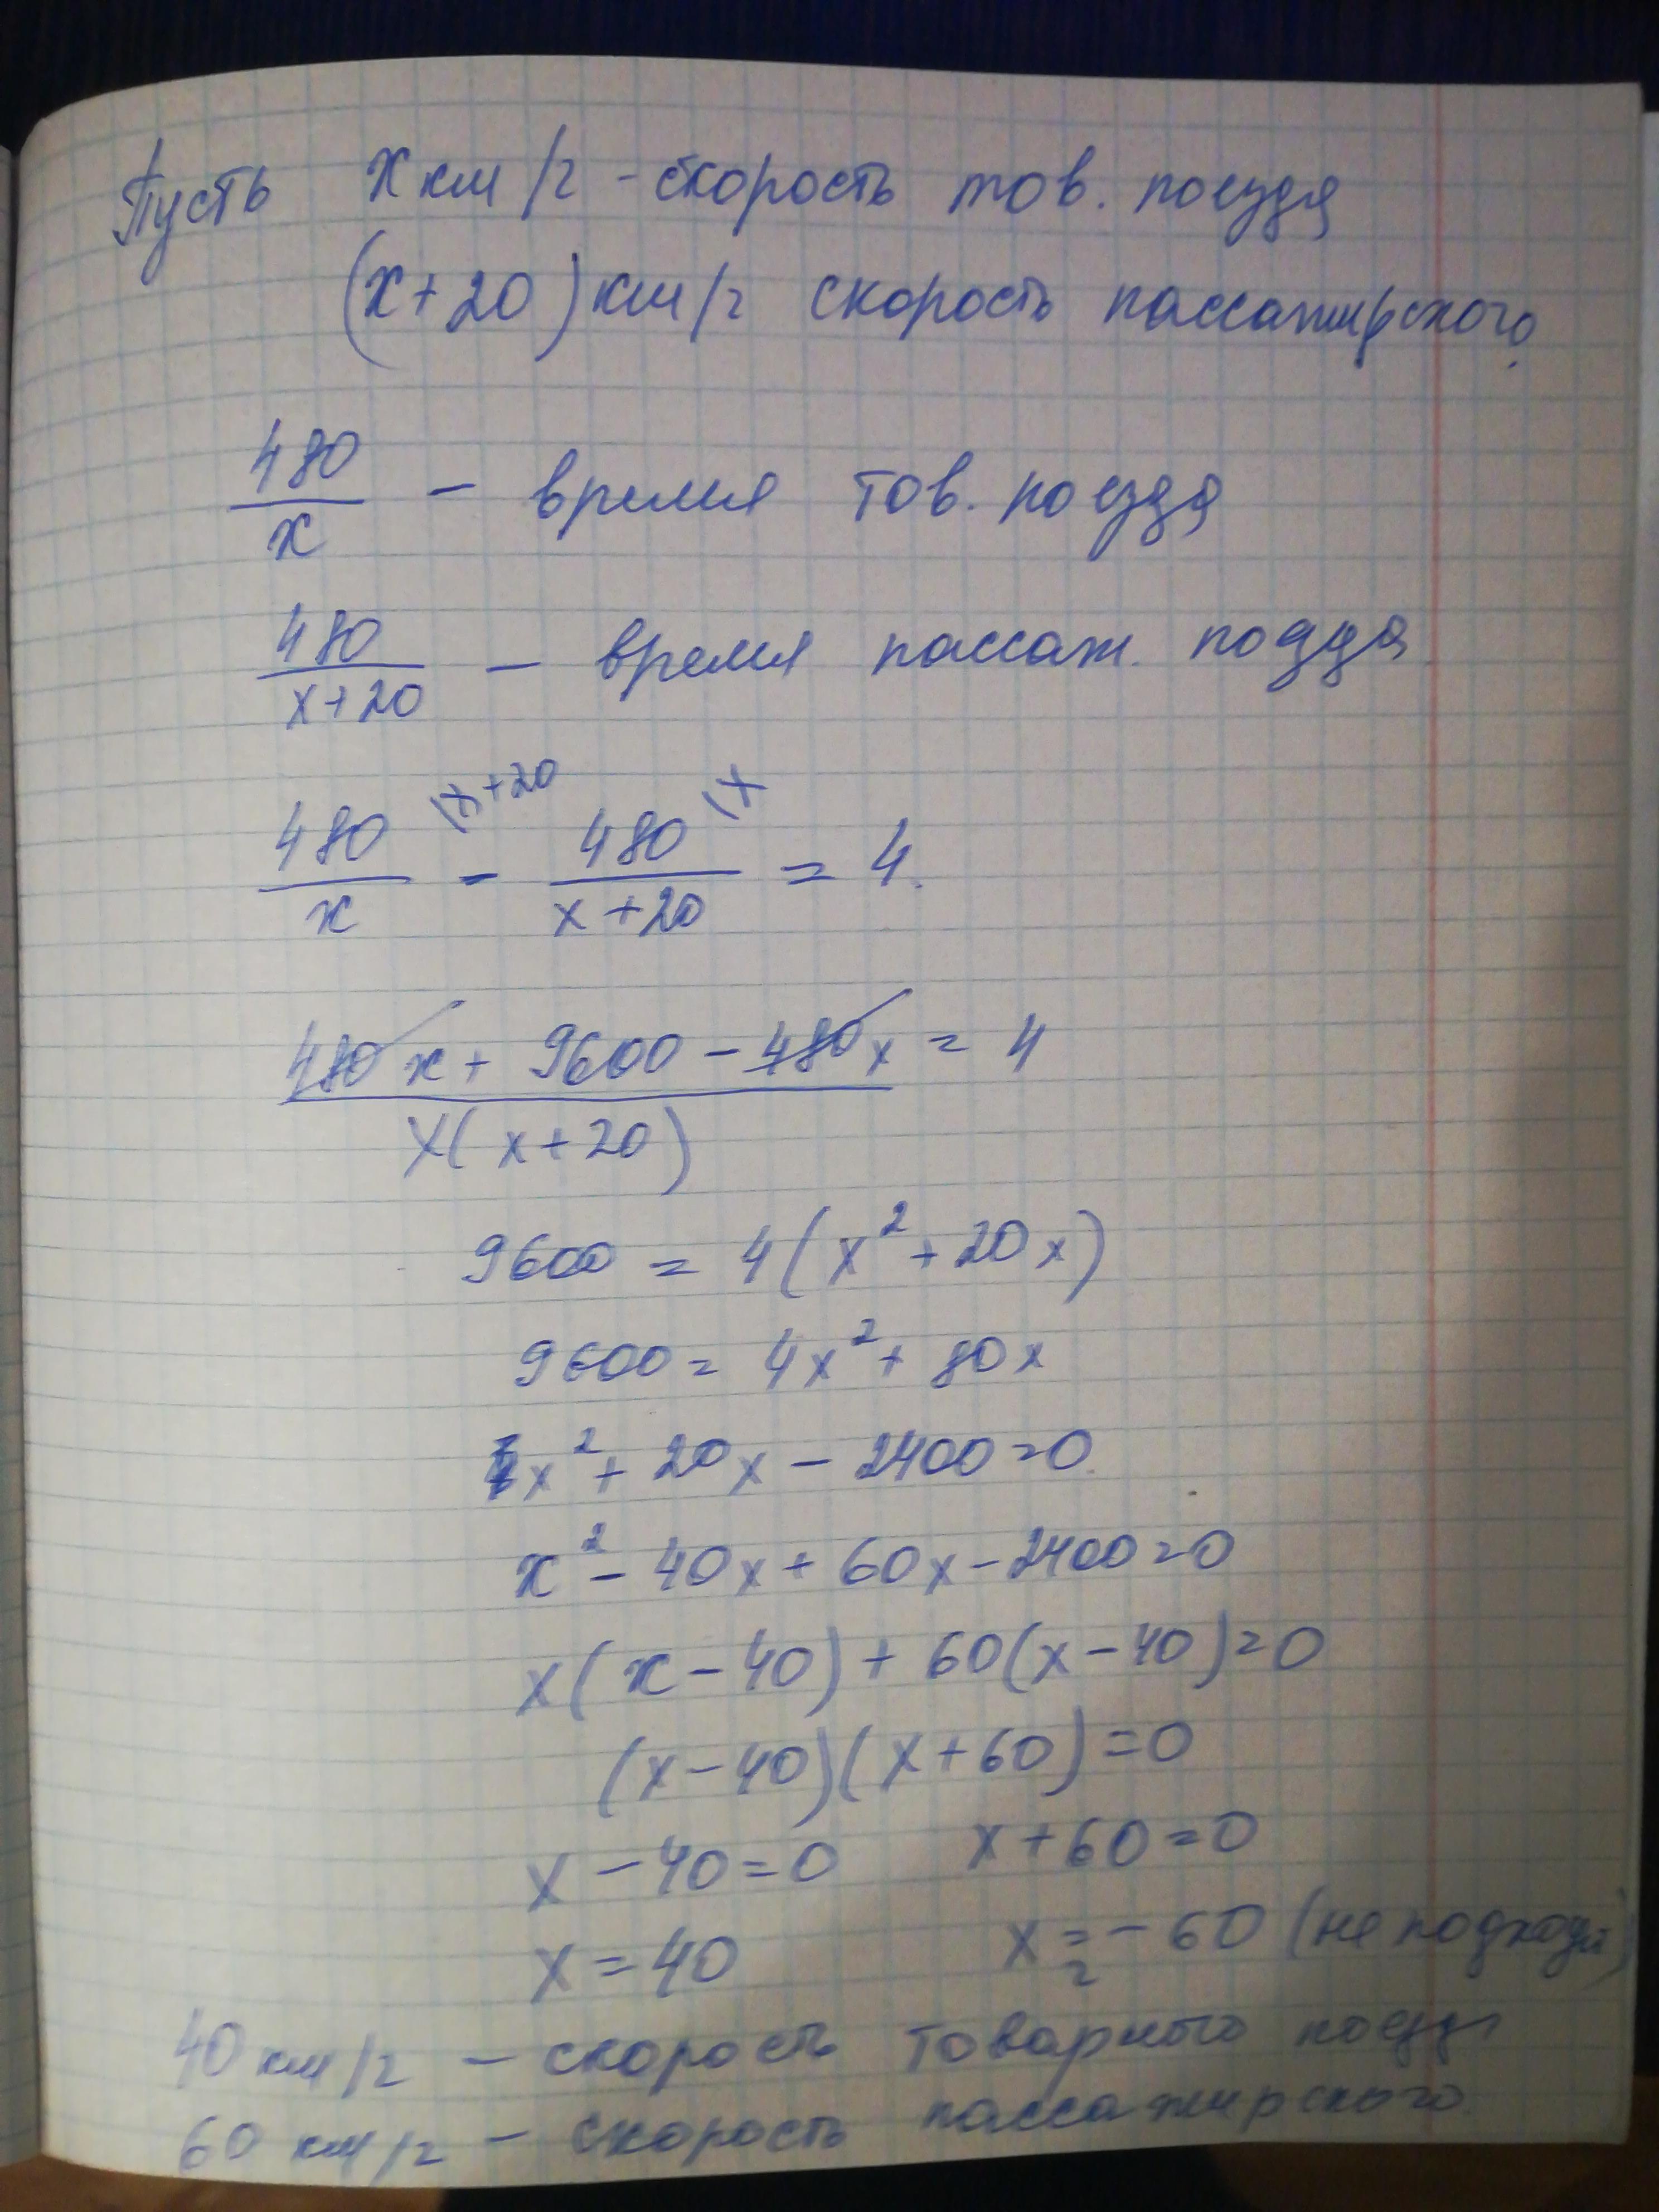 Пусть x км/ч - скорость тов. поезда
(x+20) км/ч скорость пассажирского.
480/x - время тов. поезда
480/(x+20) - время пассаж. поезда
480/x \x+20 - 480/(x+20) \x = 4.
(480x + 9600 - 480x)/(x(x+20)) = 4
9600 = 4(x² + 20x)
9600 = 4x² + 80x
x² + 20x - 2400 = 0.
x² - 40x + 60x - 2400 = 0
x(x - 40) + 60(x - 40) = 0
(x - 40)(x + 60) = 0
x - 40 = 0 x + 60 = 0
x = 40 x₂ = - 60 (не подходит)
40 км/ч - скорость товарного поезда
60 км/ч - скорость пассажирского